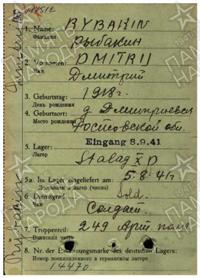 1. Name: RYBAKIN
Фамилия Рыбакин
2. Vorname: DMITRIJ
Имя Дмитрий
3. Geburtstag: 1918г.
День рождения
4. Geburtsort: д. Дмитриевск
Место рождения Ростовской обл.
Eingang 8.9.41
5. Lager: Stalag X D
Лагерь
5a. Im Lager eingeliefert am: 5.8.41г
6. Dienstgrad: Sold
Солдат
7. Truppenteil: 249 Арт. полк
Войсковая часть
8. Nr. der Erkennungsmarke des deutschen Lagers:
Номер опознавательного в германском лагере
14470